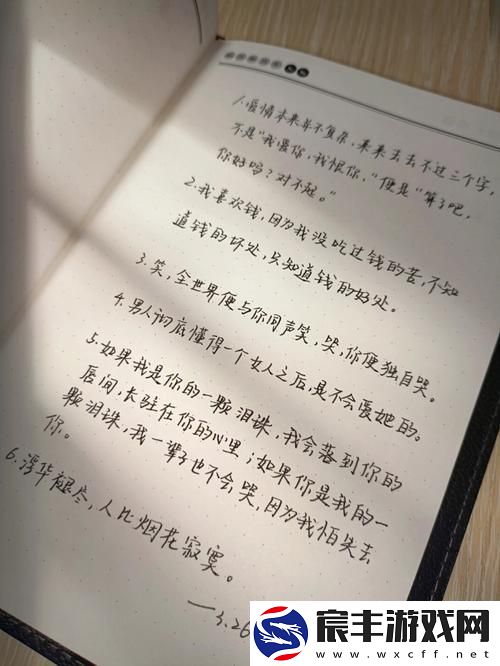 1.爱情本来并不复杂，来来去去不过三个字，
不是“我爱你，我恨你，”便是“算了吧，
你好吗？对不起。”
2.我喜欢钱，因为我没吃过钱的苦，不知
道钱的坏处，只知道钱的好处。
3.笑，全世界便与你同声笑，哭，你便独自哭。
4.男人彻底懂得一个女人之后，是不会爱她的。
5.如果我是你的一颗泪珠，我会落到你的
唇间，长驻在你的心里；如果你是我的一
颗泪珠，我一辈子也不会哭，因为我怕失去
你。
6.浮华褪尽，人比烟花寂寞。
——3.26
宸丰游戏网
www.wxcff.net